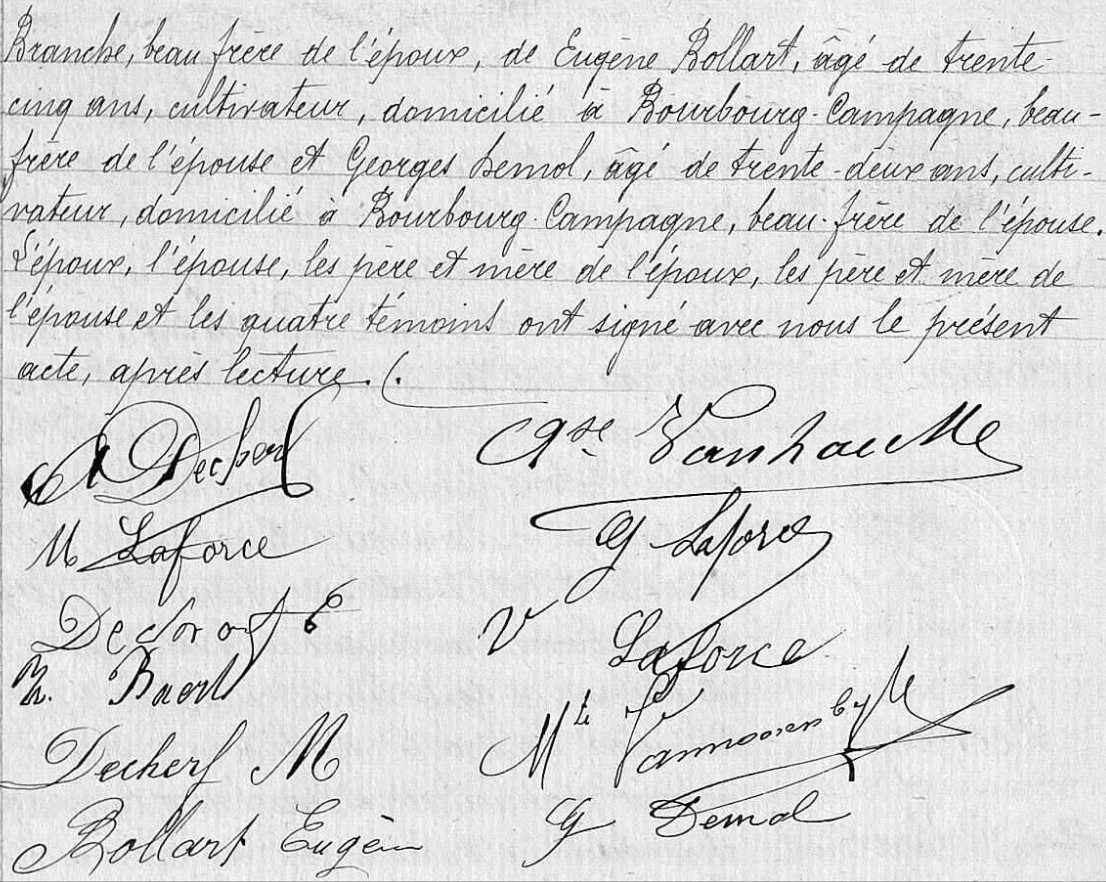 Branche, beau frère de l'époux, de Eugène Bollart, âgé de trente-
cinq ans, cultivateur, domicilié à Bourbourg-Campagne, beau-
frère de l'épouse et Georges Demol, âgé de trente-deux ans, culti-
vateur, domicilié à Bourbourg-Campagne, beau-frère de l'épouse.
L'époux, l'épouse, les père et mère de l'époux, les père et mère de
l'épouse et les quatre témoins ont signé avec nous le présent
acte, après lecture./.
Decherf
M Laforce
G Laforce
V Laforce
Z. Baert
Decherf M
Bollart Eugène
G Demol